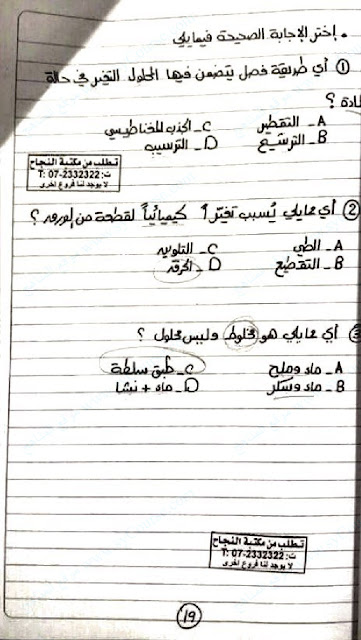 . إختر الإجابة الصحيحة فيمايلي
① أي طريقة فصل يتضمن فيها الحلول التغير في حالة
المادة ؟
A - التقطير C - الجذب المغناطيسي
B - الترشيح D - الترسيب
تطلب من مكتبة النجاح
ت: 07-2332322 :T
لا يوجد لنا فروع اخرى
② أي ممايلي يُسبب تغيّراً كيميائياً لقطعة من الورق ؟
A - الطي C - التلوين
B - التقطيع D - الحرق
③ أي ممايلي هو مخلوط وليس محلول ؟
A - ماء وملح C - طبق سلطة
B - ماء وسكر D - ماء + نشا
تطلب من مكتبة النجاح
ت: 07-2332322 :T
لا يوجد لنا فروع اخرى
19